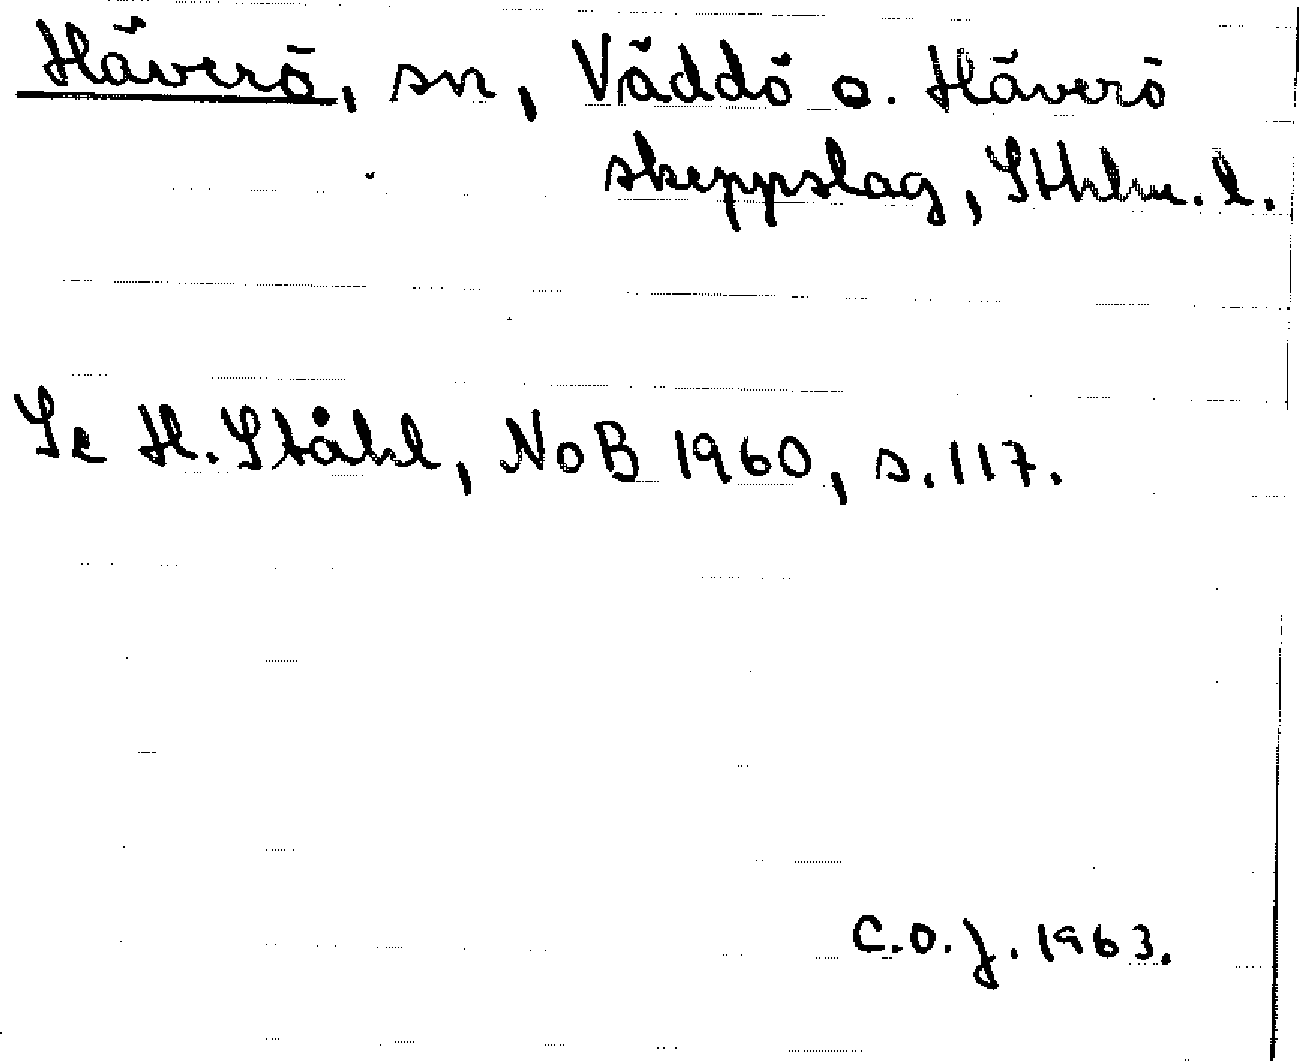 Häverö, sn, Väddö o. Häverö
skeppslag, Sthlm. l.
Se H. Ståhl, NoB 1960, s. 117.
C.O.J. 1963.